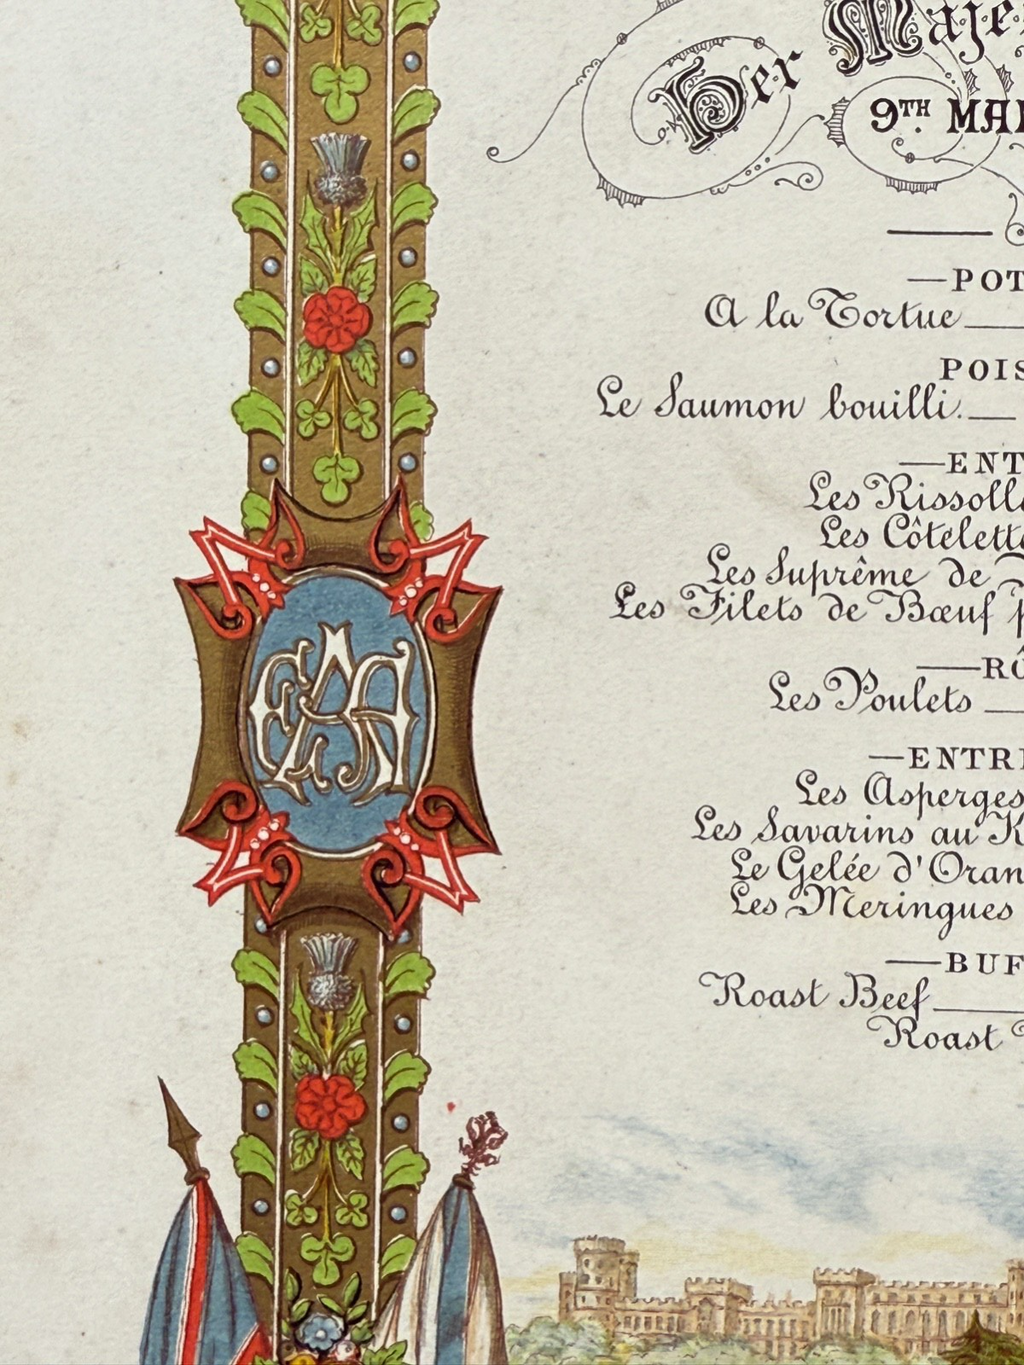 Her Maje
9TH MA
—POT
A la Tortue
POIS
Le Saumon bouilli.
—ENT
Les Rissoll
Les Côtelett
Les Suprême de
Les Filets de Bœuf p
—RÔ
Les Poulets
—ENTR
Les Asperges
Les Savarins au K
Le Gelée d'Oran
Les Meringues
—BUF
Roast Beef
Roast